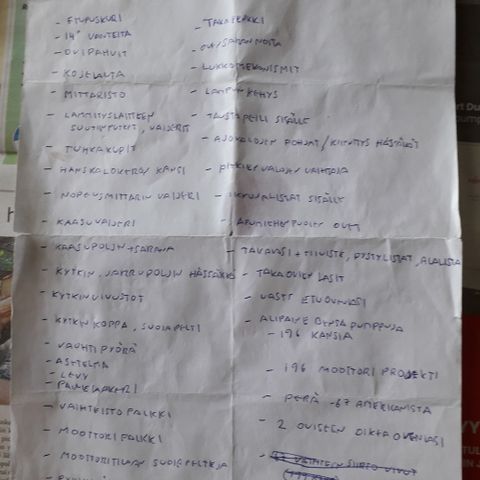 - ETUPUSKURI
- 14" VANTEITA
- OVIPAHVIT
- KOJELAUTA
- MITTARISTO
- LÄMMITYSLAITTEEN
SUUTINPUTKET, VAIJERIT
- TUHKAKUPIT
- HANSKALOKERON KANSI
- NOPEUSMITTARIN VAIJERI
- KAASUVAIJERI
- KAASUPOLJIN + SARANA
- KYTKIN, JARRUPOLJIN HÄSSÄKKÄ
- KYTKINVIVUSTOT
- KYTKIN KOPPA, SUOJAPELTI
- VAUHTIPYÖRÄ
- ASETELMA
- LEVY
- PAINELAAKERI
- VAIHTEISTO PALKKI
- MOOTTORI PALKKI
- MOOTTORITILAAN SUOJAPELTEJÄ
- TAKAPENKKI
- OVENSARANOITA
- LUKKOMEKANISMIT
- LAMPUN KEHYS
- TAUSTAPEILI SISÄLLE
- AJOVALOJEN POHJAT / KIINNITYS HÄSSÄKÄT
- PITKIEN VALOJEN VAIHTAJA
- IKKUNALISTAT SISÄLLE
- APUMIEHEN PUOLEN OVET
- TAKALASI + TIIVISTE, PYSTYLISTAT, ALALISTA
- TAKAOVIEN LASIT
- VASEN ETUOVENLASI
- ALIPAINE BENSA PUMPPUJA
- 196 KANSIA
- 196 MOOTTORI PROJEKTI
- PERÄ -67 AMERIKANISTA
- 2 OVISEEN OIKEA OVENLASI
VAIHTEEN SIIRTO VIVUT